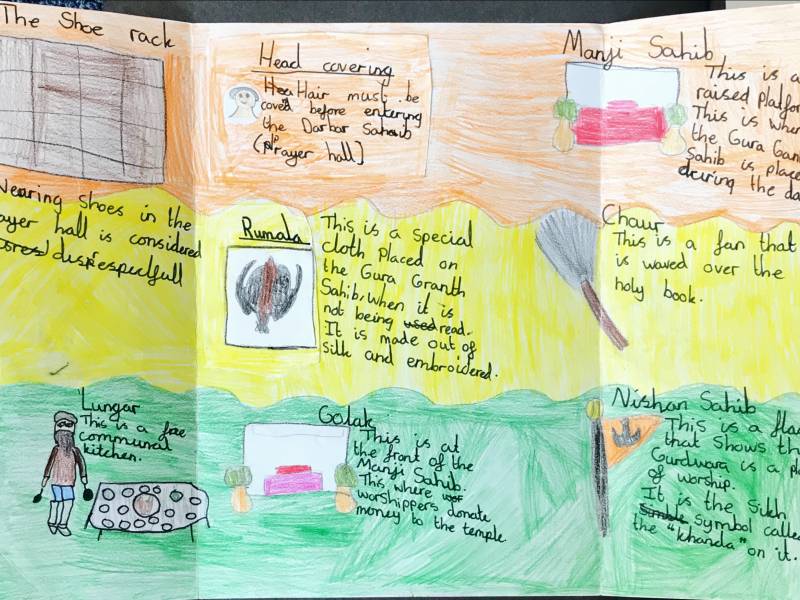 The Shoe rack
Wearing shoes in the
ayer hall is considered
disrespesfull
Head covering
Hair must be
coverd before entering
the Darbar Sahaib
(Prayer hall)
Manji Sahib
This is a
raised platfor
This is wher
the Gura Gran
Sahib is place
during the da
Rumala
This is a special
cloth placed on
the Gura Granth
Sahib, when it is
not being used read.
It is made out of
silk and embroidered.
Chaur
This is a fan that
is waved over the
holy book.
Lungar
This is a free
communal
kitchen.
Golak
This is at
the front of the
Manji Sahib.
This where
worshippers donate
money to the temple.
Nishan Sahib
This is a flag
that shows th
Gurdwara is a pl
of worship.
It is the Sikh
symbol calle
the "khanda" on it.